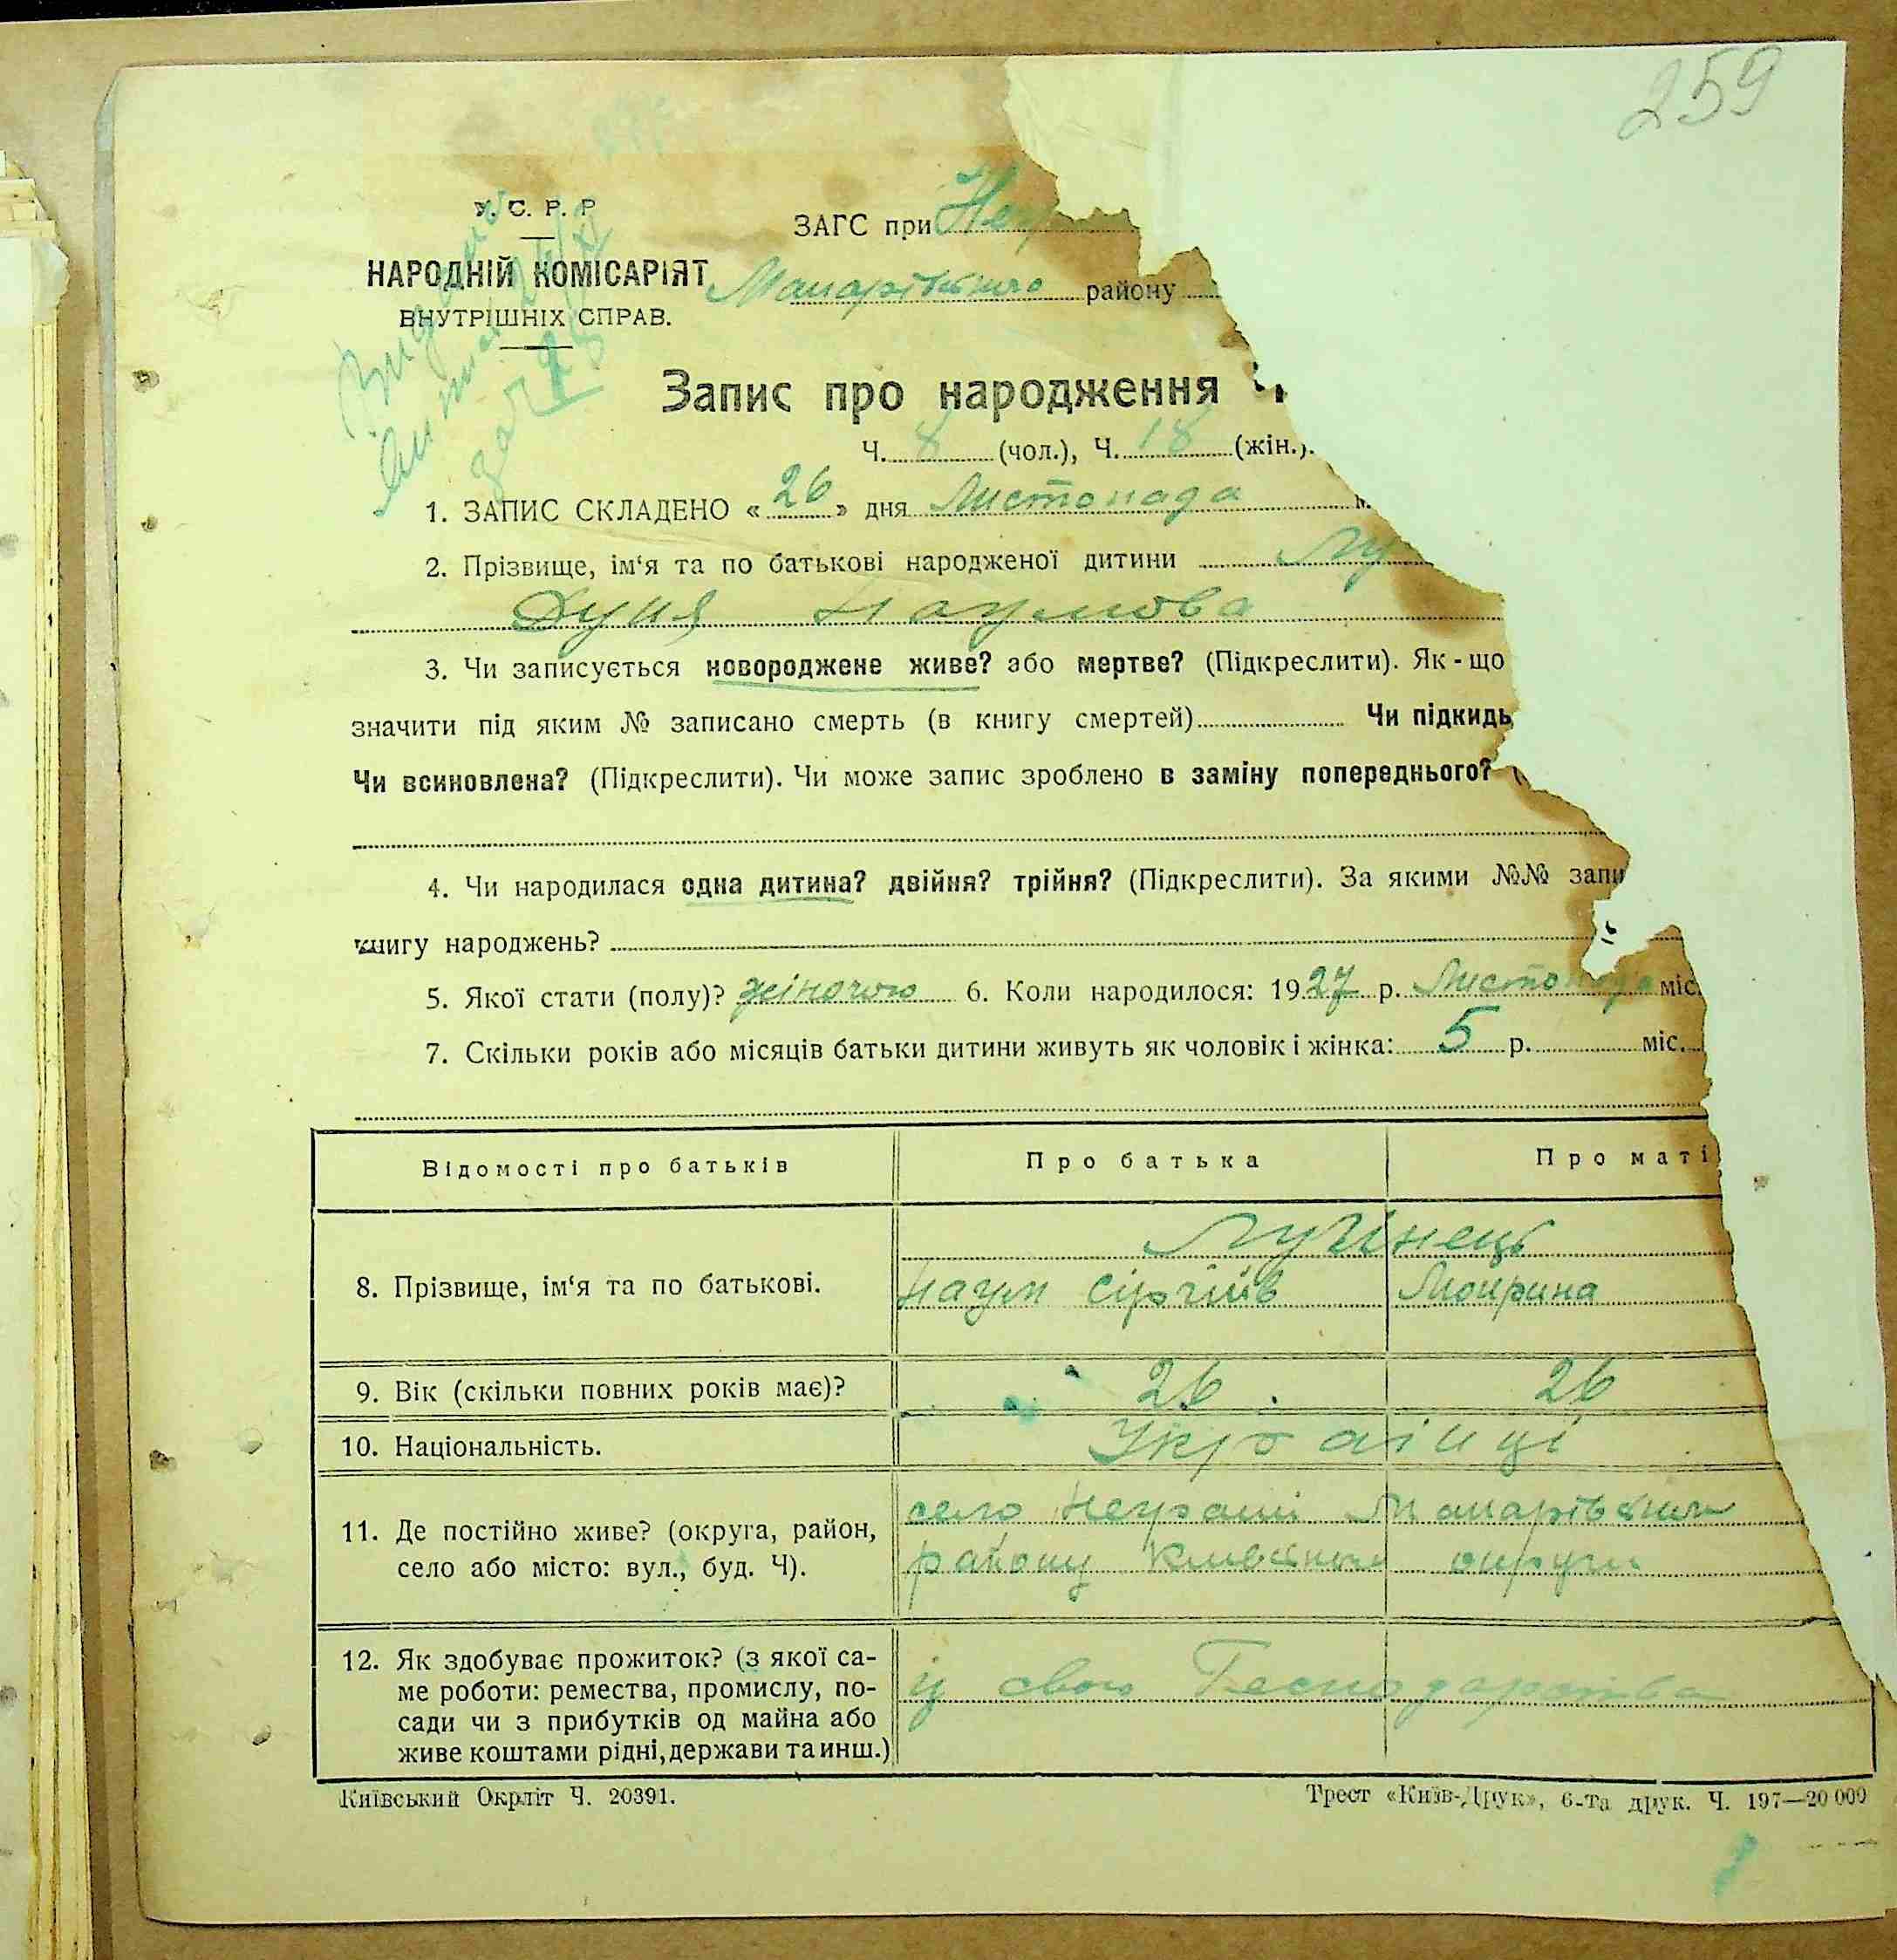 259
У. С. Р. Р
ЗАГС при Неу
НАРОДНІЙ КОМІСАРІЯТ
Макарівського району
ВНУТРІШНІХ СПРАВ.
Видано
Запис про народження
Ч. 8 (чол.), Ч. 18 (жін.).
1. ЗАПИС СКЛАДЕНО «26» дня Листопада м.
2. Прізвище, ім‘я та по батькові народженої дитини Лу
Дуня Наумова
3. Чи записується новороджене живе? або мертве? (Підкреслити). Як-що
значити під яким № записано смерть (в книгу смертей) Чи підкидь
Чи всиновлена? (Підкреслити). Чи може запис зроблено в заміну попереднього? (
4. Чи народилася одна дитина? двійня? трійня? (Підкреслити). За якими №№ запи
книгу народжень?
5. Якої стати (полу)? жіночого 6. Коли народилося: 1927 р. Листопада міс.
7. Скільки років або місяців батьки дитини живуть як чоловік і жінка: 5 р. міс.
Відомості про батьків Про батька Про маті
Лучінець
8. Прізвище, ім‘я та по батькові. Наум Сіргіїв Мокрина
9. Вік (скільки повних років має)? 26 26
10. Національність. Українці
село Неграші Макарівського
11. Де постійно живе? (округа, район,
село або місто: вул., буд. Ч). району Київської округи
12. Як здобуває прожиток? (з якої са-
ме роботи: ремества, промислу, по- із свого Господарства
сади чи з прибутків од майна або
живе коштами рідні, держави та инш.)
Київський Окрліт Ч. 20391. Трест «Київ-Друк», 6-та друк. Ч. 197—20 000